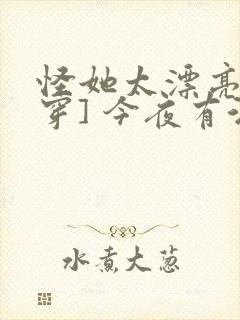 怪她太漂亮
穿] 今夜有
水煮大葱